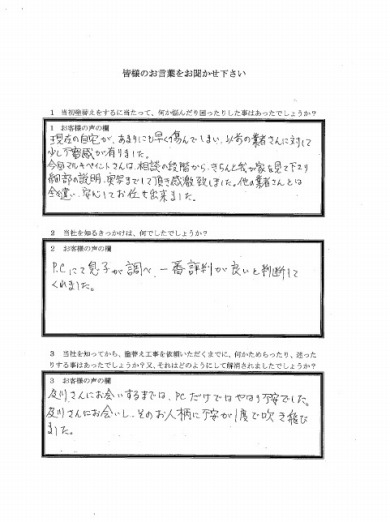 皆様のお言葉をお聞かせ下さい
1 当初塗替えをするに当たって、何か悩んだり困ったりした事はあったでしょうか？
1 お客様の声の欄
現在の自宅が、あまりにも早く傷んでしまい、以前の業者さんに対して
少し不審感が有りました。
今回マルキペイントさんは、相談の段階から、きちんと我が家を見て下さり
細部の説明、実写までして頂き感激致しました。他の業者さんとは
全く違い、安心してお任せ出来ました。
2 当社を知るきっかけは、何でしたでしょうか？
2 お客様の声の欄
P.C.にて息子が調べ、一番評判が良いと判断して
くれました。
3 当社を知ってから、塗替え工事を依頼いただくまでに、何かためらったり、迷った
りする事はあったでしょうか？又、それはどのようにして解消されましたでしょうか？
3 お客様の声の欄
及川さんにお会いするまでは、PCだけではやはり不安でした。
及川さんにお会いし、そのお人柄に不安が1度で吹き飛び
ました。